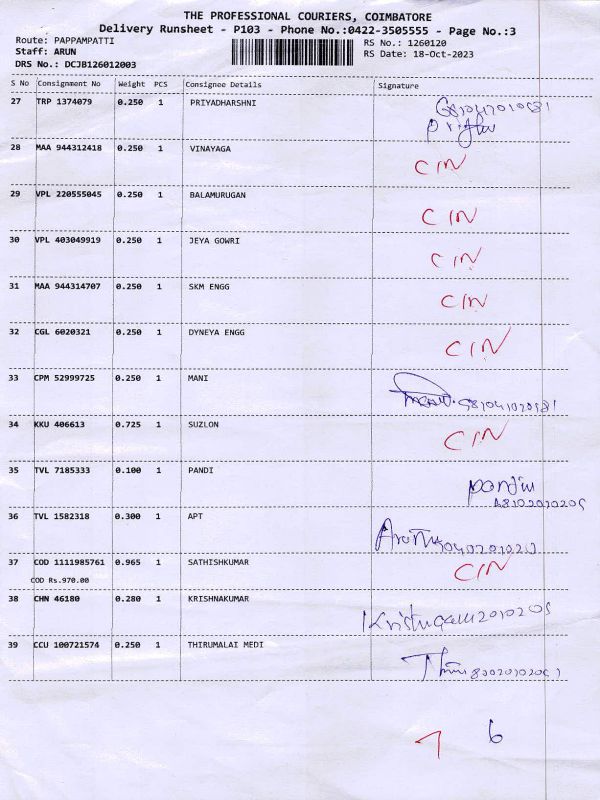 THE PROFESSIONAL COURIERS, COIMBATORE
Delivery Runsheet - P103 - Phone No.:0422-3505555 - Page No.:3
Route: PAPPAMPATTI RS No.: 1260120
Staff: ARUN RS Date: 18-Oct-2023
DRS No.: DCJB126012003
S No Consignment No Weight PCS Consignee Details Signature
27 TRP 1374079 0.250 1 PRIYADHARSHNI
28 MAA 944312418 0.250 1 VINAYAGA CIN
29 VPL 220555045 0.250 1 BALAMURUGAN CIN
30 VPL 403049919 0.250 1 JEYA GOWRI CIN
31 MAA 944314707 0.250 1 SKM ENGG CIN
32 CGL 6020321 0.250 1 DYNEYA ENGG CIN
33 CPM 52999725 0.250 1 MANI
34 KKU 406613 0.725 1 SUZLON CIN
35 TVL 7185333 0.100 1 PANDI
36 TVL 1582318 0.300 1 APT
37 COD 1111985761 0.965 1 SATHISHKUMAR CIN
COD Rs.970.00
38 CHN 46180 0.280 1 KRISHNAKUMAR
39 CCU 100721574 0.250 1 THIRUMALAI MEDI
7 6